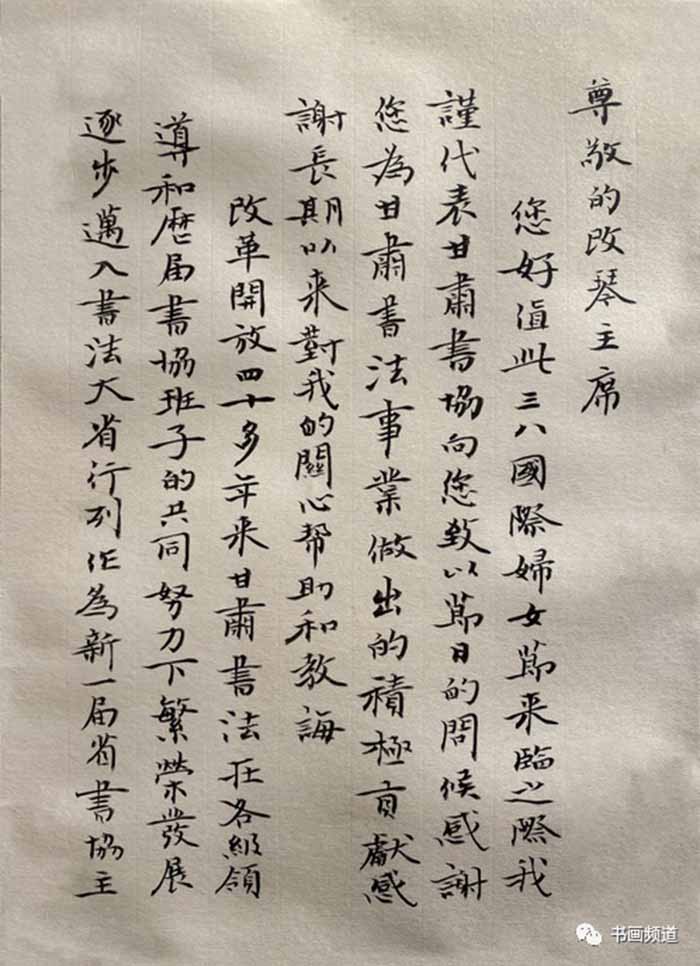 尊敬的改琴主席
您好值此三八國際婦女節来臨之際我
謹代表甘肅書協向您致以節日的問候感謝
您為甘肅書法事業做出的積極貢獻感
謝長期以来對我的關心帮助和教誨
改革開放四十多年来甘肅書法在各級領
導和歷届書協班子的共同努力下繁榮發展
逐步邁入書法大省行列作為新一届省書協主
书画频道